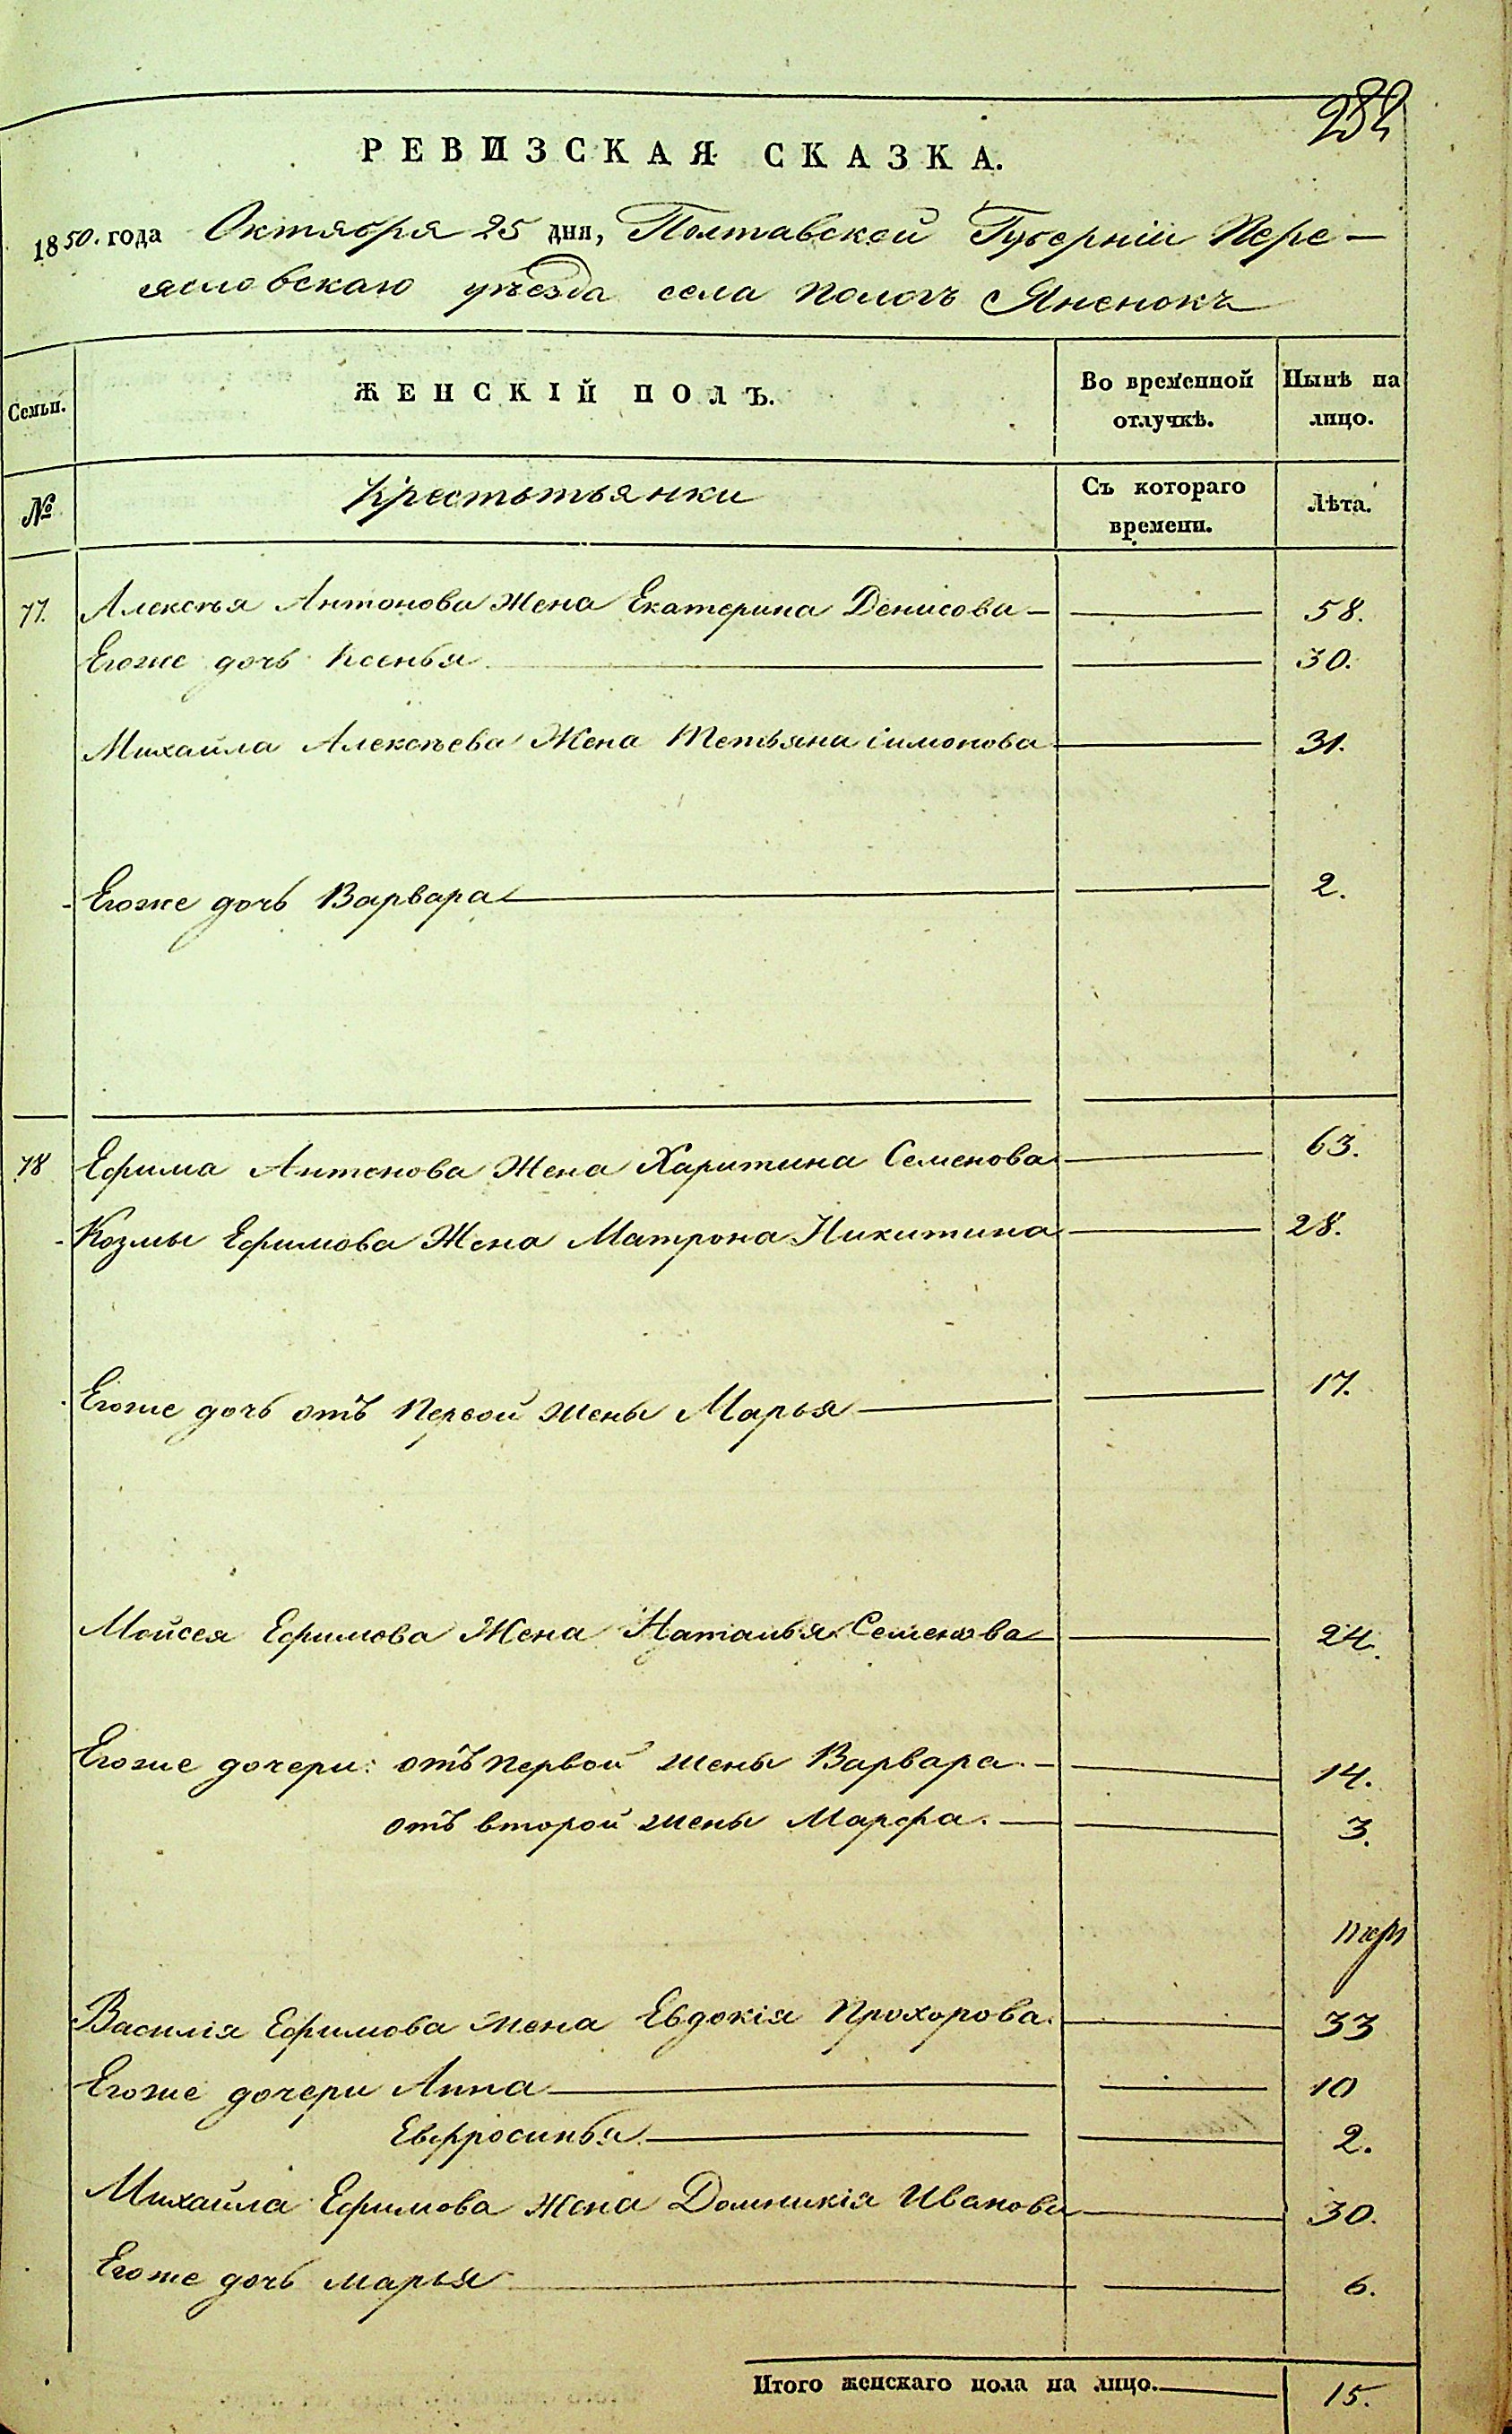 282
РЕВИЗСКАЯ СКАЗКА.
1850. года Октября 25 дня, Полтавской Губерніи Пере-
ясловскаго уѣзда села Пологъ Яненокъ
Семьи. ЖЕНСКІЙ ПОЛЪ. Во временной отлучкѣ. Нынѣ на лицо.
№ Крестьтьянки Съ котораго времени. Лѣта.
77. Алексѣя Антонова Жена Екатерина Денисова — 58.
Егоже дочь Ксенья 30.
Михайла Алексѣева Жена Тетьяна Симонова 31.
Егоже дочь Варвара 2.
78 Ефима Антонова Жена Харитина Семенова 63.
Козмы Ефимова Жена Матрона Никитина 28.
Егоже дочь отъ Первой жены Марья 17.
Мойсея Ефимова Жена Наталья Семенова 24.
Егоже дочери: отъ первой жены Варвара. — 14.
отъ второй жены Марфа. — 3.
Василія Ефимова жена Евдокія Прохорова. 33
Егоже дочери Анна 10
Евфросинья 2.
Михайла Ефимова жена Домникія Иванова 30.
Егоже дочь Марья 6.
Итого женскаго пола на лицо. 15.